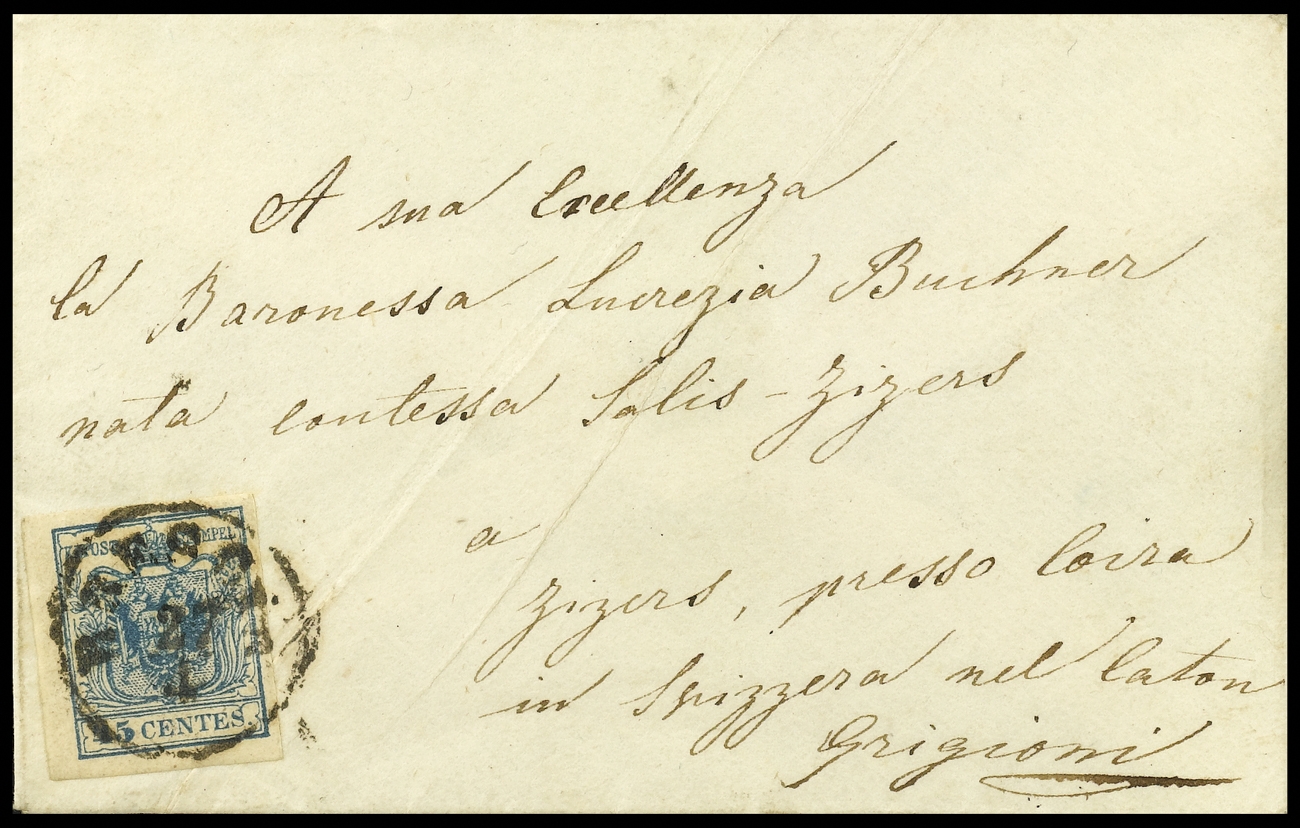 A sua Excellenza
la Baronessa Lucrezia Buchner
nata contessa Salis-Zizers
a
Zizers, presso Coira
in Svizzera nel Caton
Grigioni
27
45 CENTES.